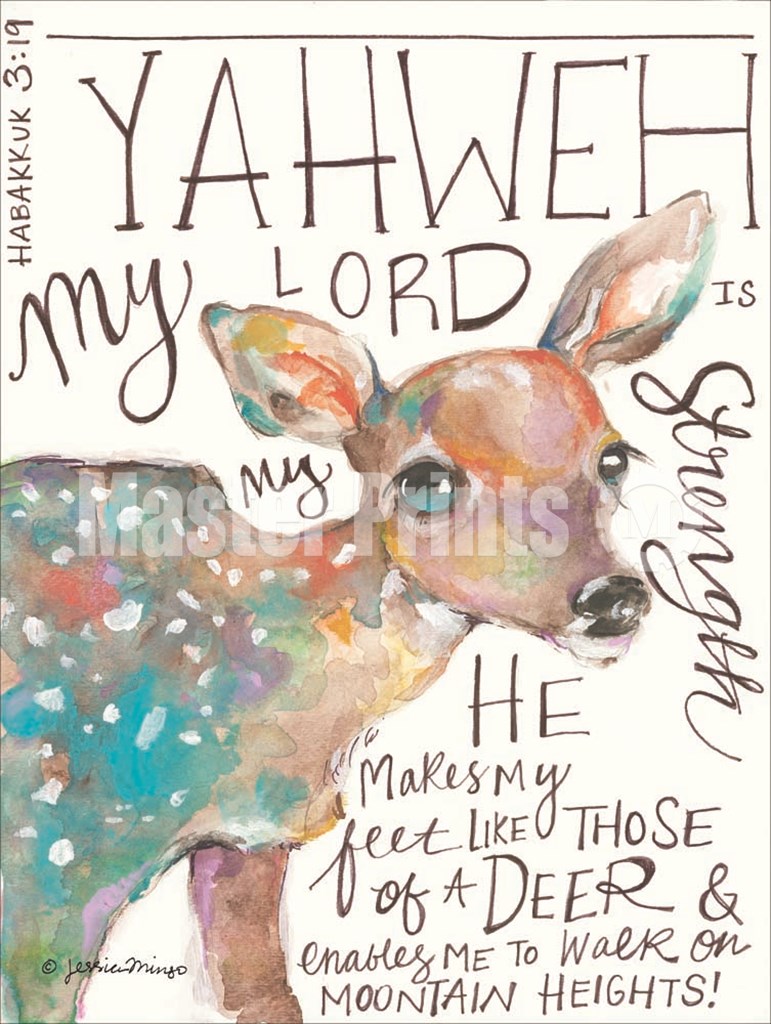 HABAKKUK 3:19
YAHWEH
my LORD IS
my Strength
HE
makes my
feet LIKE THOSE
of A DEER &
enables ME TO walk on
MOONTAIN HEIGHTS!
© Jessica Mingo
Master Prints
M